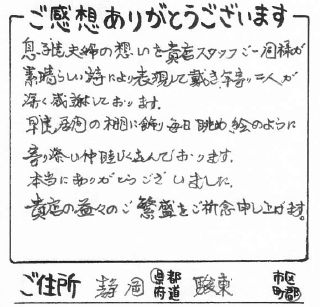 ご感想ありがとうございます
息子夫婦の想いを貴店スタッフご一同様が
素晴らしい詩により表現して戴き年寄り二人が
深く感謝しております。
早速居間の棚に飾り毎日眺め絵のように
寄り添い仲睦じく喜んでおります。
本当にありがとうございました。
貴店の益々のご繁盛をご祈念申し上げます。
ご住所 静岡 都道府県 駿東 市区町郡